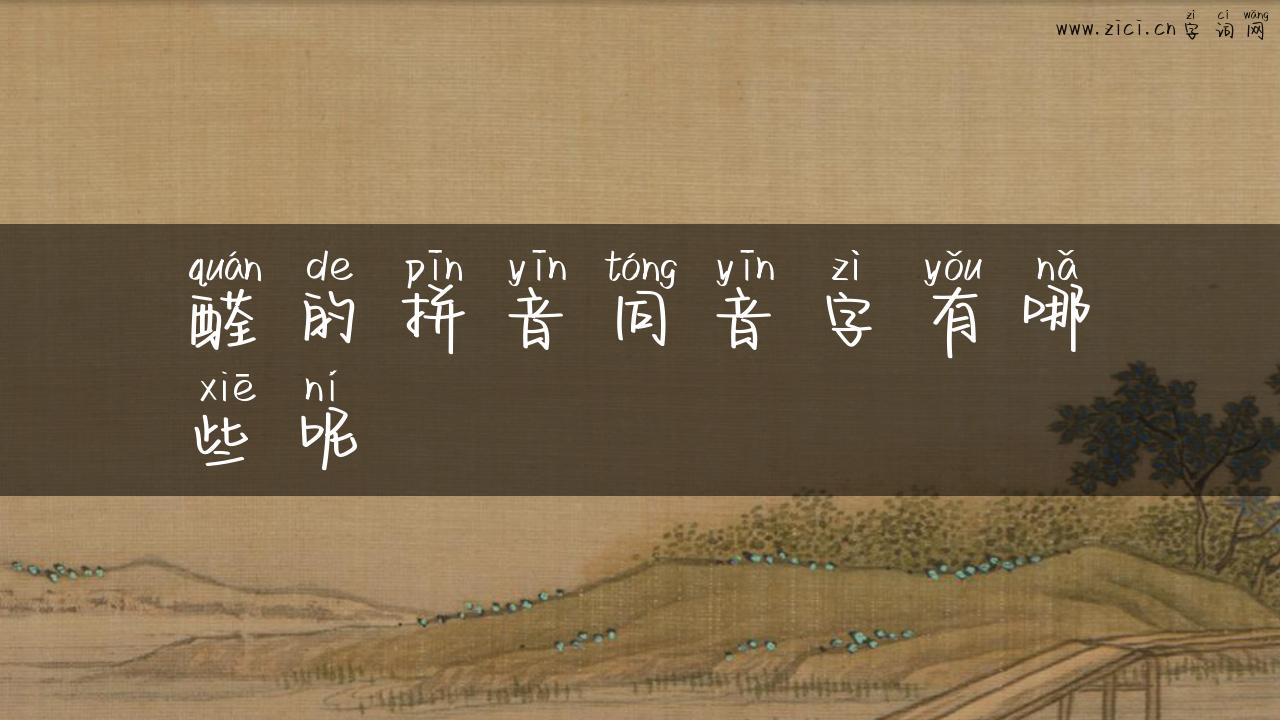 zì cí wǎng
www.zici.cn 字词网
quán de pīn yīn tóng yīn zì yǒu nǎ
醛的拼音同音字有哪
xiē ní
些呢